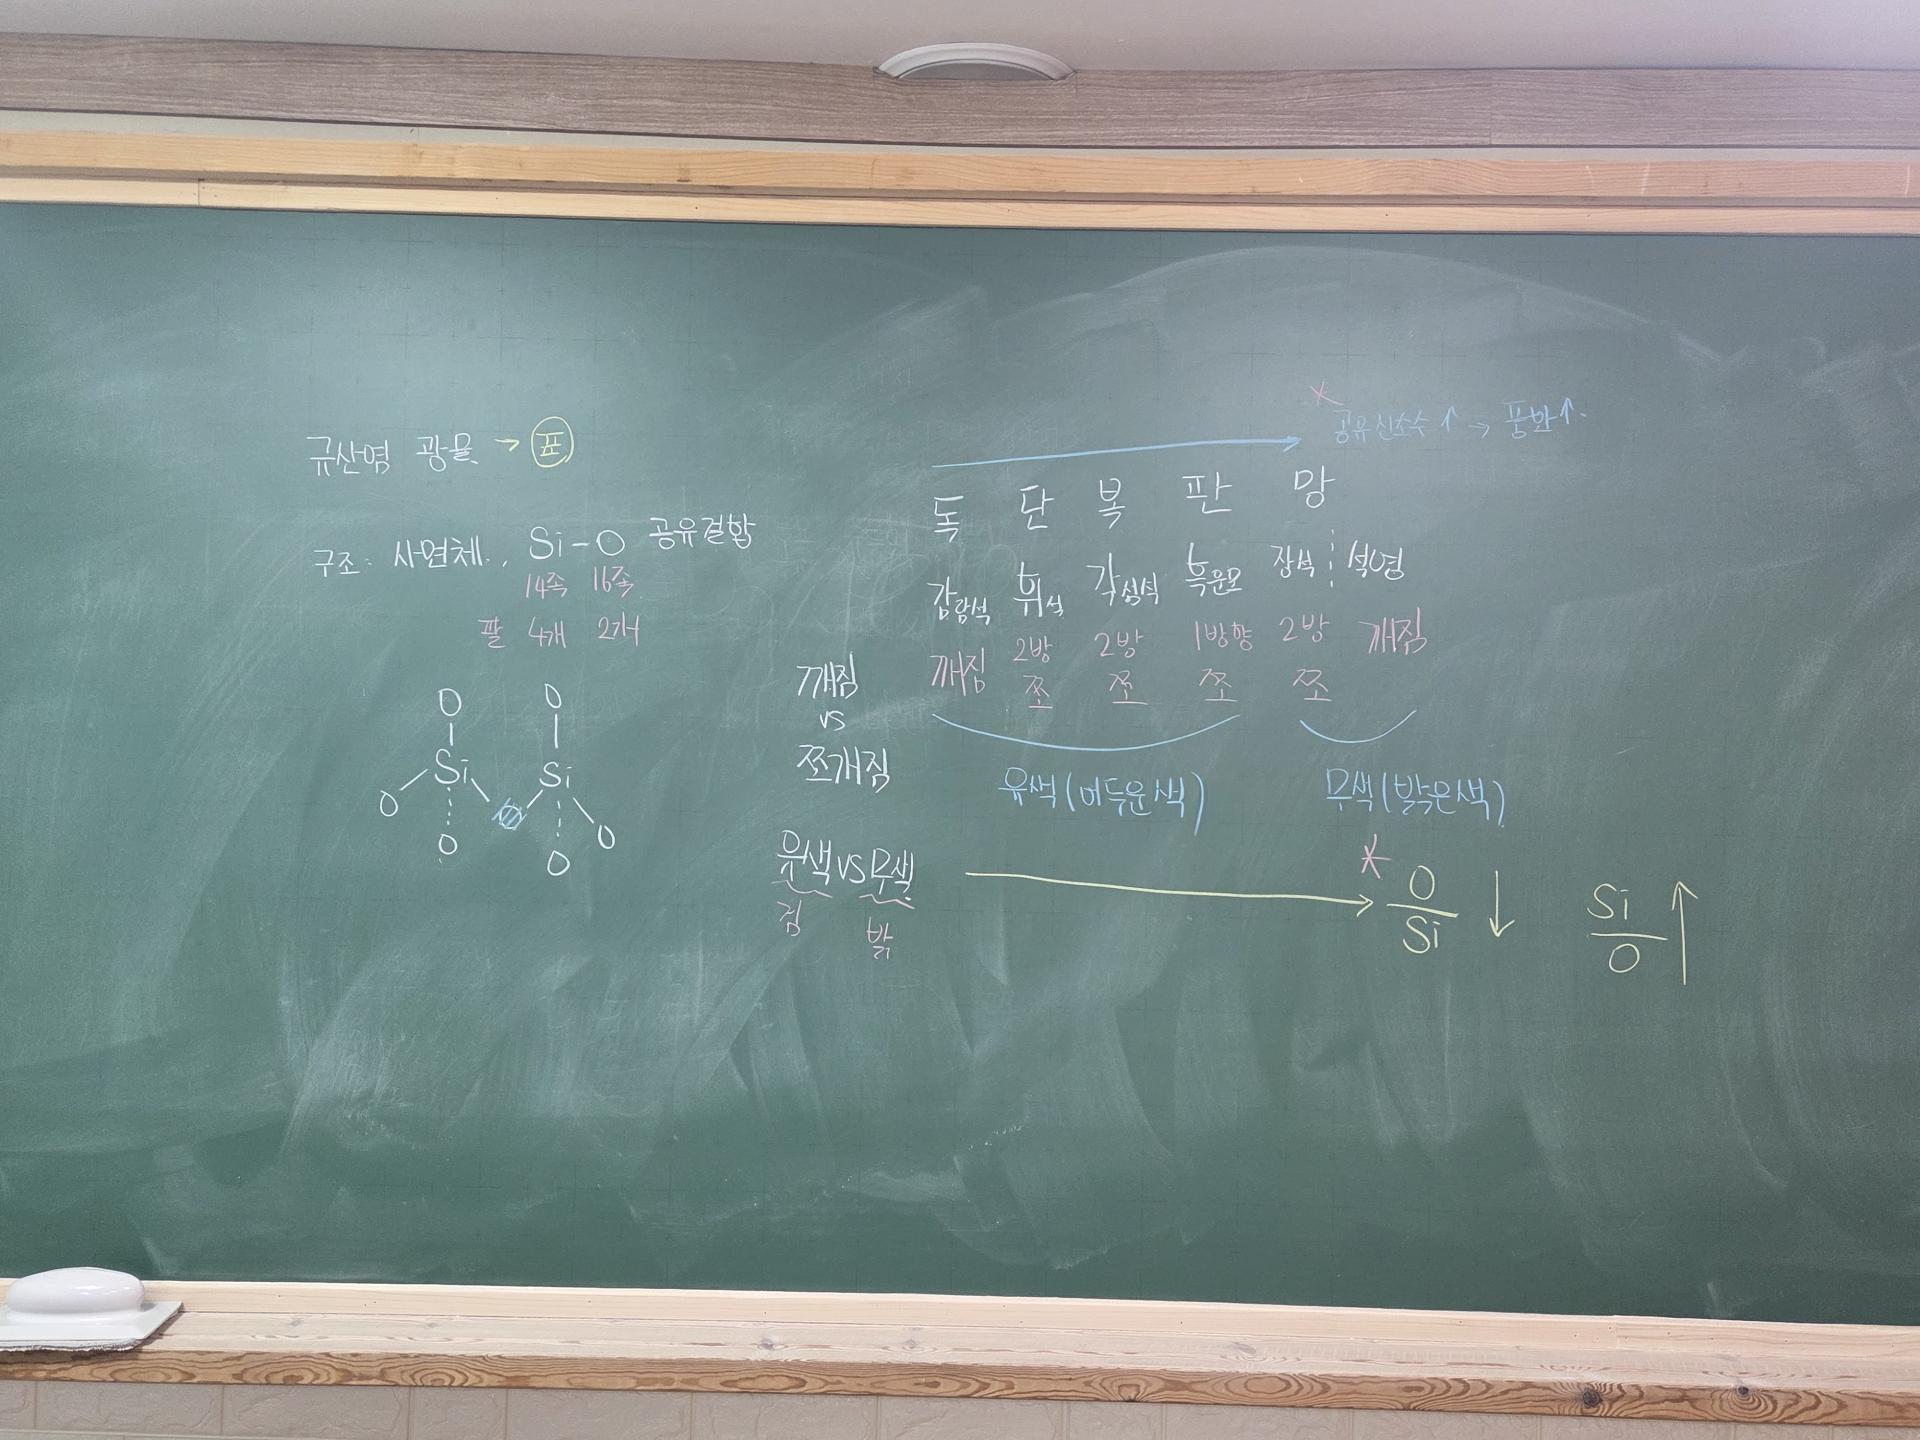 규산염 광물 → 표
구조: 사면체., Si-O 공유결합
14족 16족
팔 4개 2개
O O
Si Si
O O O
O O
* 공유산소수↑ → 풍화↑.
독 단 복 판 망
감람석 휘석 각섬석 흑운모 장석 석영
깨짐 2방 2방 1방향 2방 깨짐
쪼 쪼 쪼 쪼
깨짐
vs
쪼개짐
유색(어두운 색) 무색(밝은색)
유색 vs 무색
검 밝
* O/Si ↓ Si/O ↑